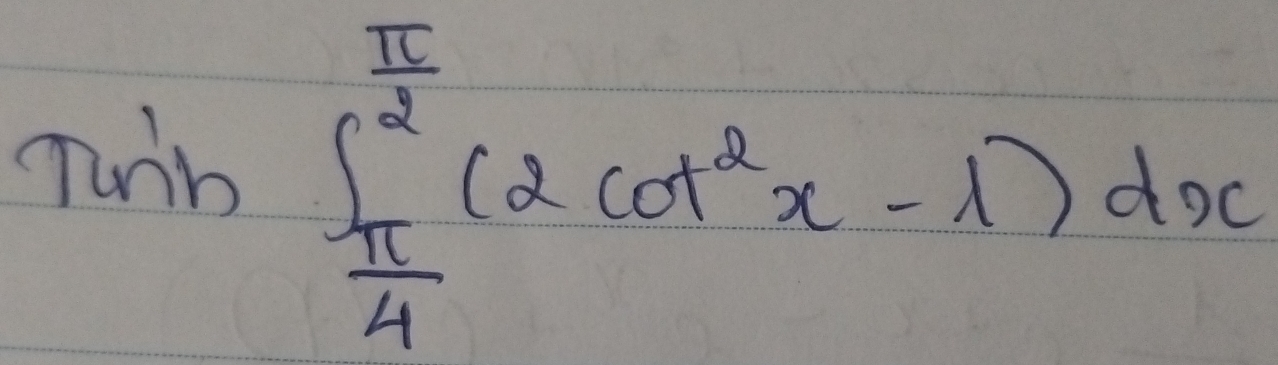 Tính $\int_{\frac{\pi}{4}}^{\frac{\pi}{2}} (2 \cot^2 x - 1) dx$